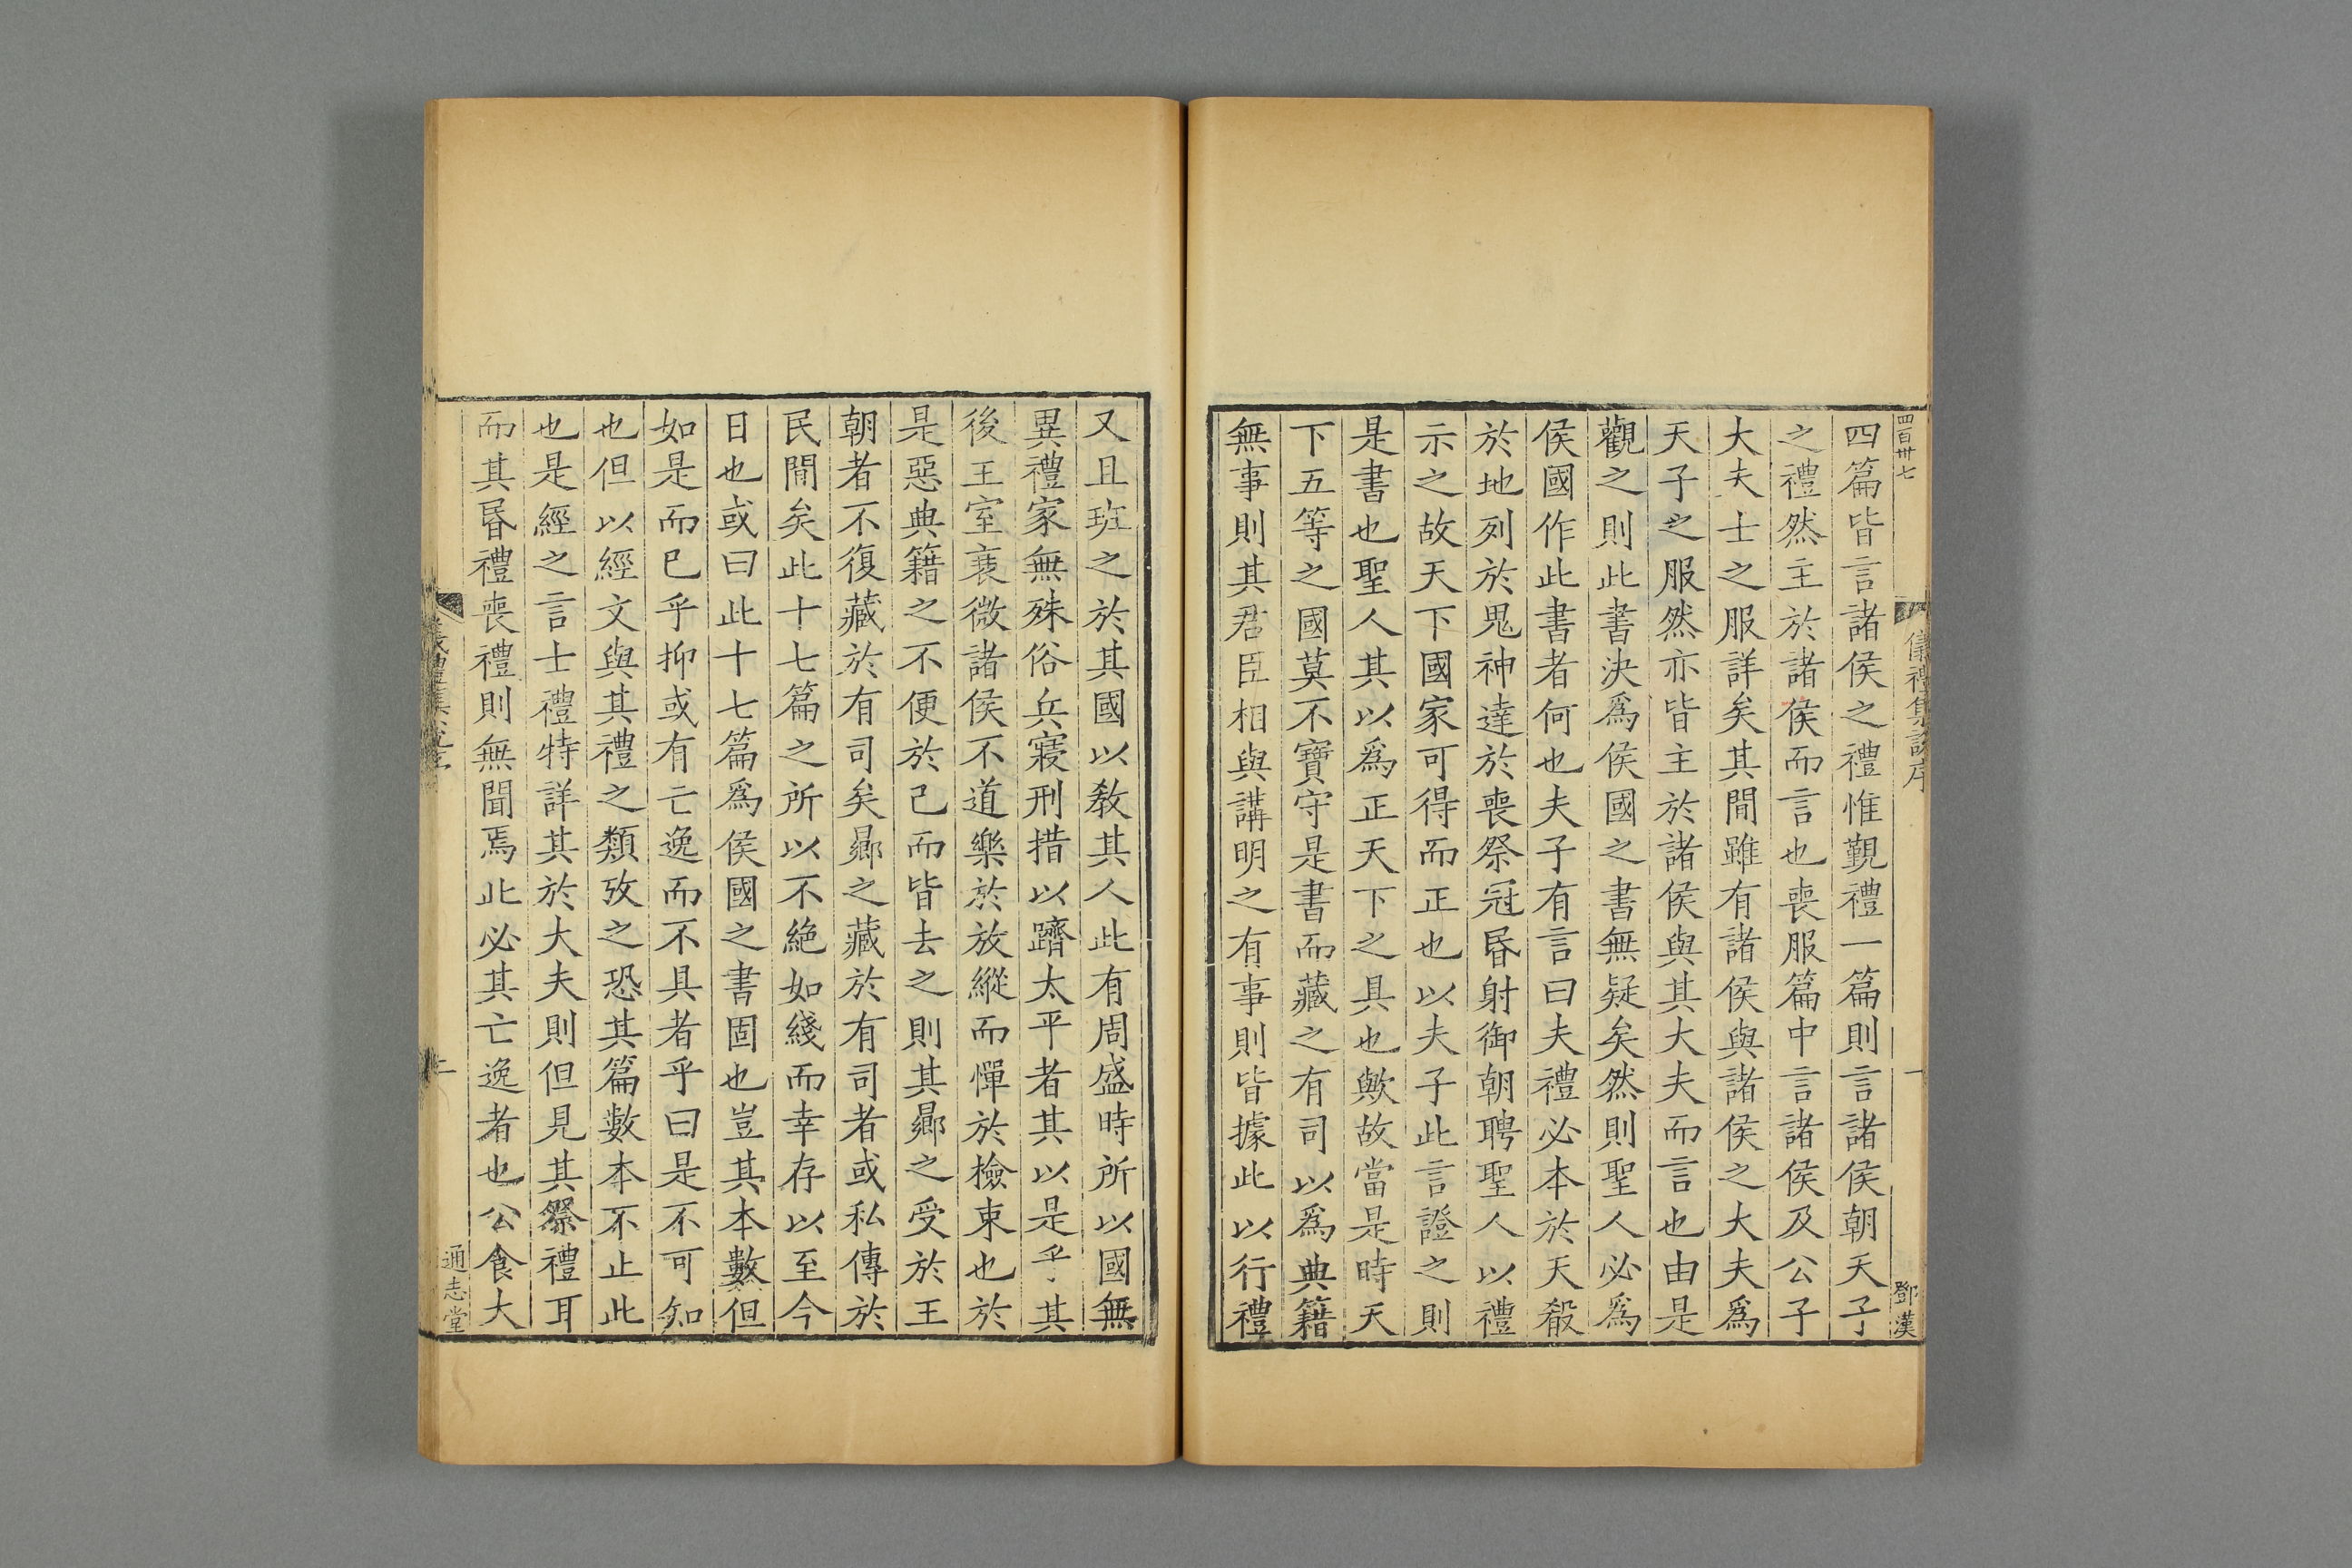 四百卅七
儀禮集說序
一
鄧漢
四篇皆言諸侯之禮惟覲禮一篇則言諸侯朝天子
之禮然主於諸侯而言也喪服篇中言諸侯及公子
大夫士之服詳矣其間雖有諸侯與諸侯之大夫爲
天子之服然亦皆主於諸侯與其大夫而言也由是
觀之則此書決爲侯國之書無疑矣然則聖人必爲
侯國作此書者何也夫子有言曰夫禮必本於天殽
於地列於鬼神達於喪祭冠昬射御朝聘聖人以禮
示之故天下國家可得而正也以夫子此言證之則
是書也聖人其以爲正天下之具也歟故當是時天
下五等之國莫不寶守是書而藏之有司以爲典籍
無事則其君臣相與講明之有事則皆據此以行禮
又且班之於其國以敎其人此有周盛時所以國無
異禮家無殊俗兵寢刑措以躋太平者其以是乎其
後王室衰微諸侯不道樂於放縱而憚於檢束也於
是惡典籍之不便於己而皆去之則其鄉之受於王
朝者不復藏於有司矣鄉之藏於有司者或私傳於
民間矣此十七篇之所以不絶如綫而幸存以至今
日也或曰此十七篇爲侯國之書固也豈其本數但
如是而已乎抑或有亡逸而不具者乎曰是不可知
也但以經文與其禮之類攷之恐其篇數本不止此
也是經之言士禮特詳其於大夫則但見其祭禮耳
而其昬禮喪禮則無聞焉此必其亡逸者也公食大
儀禮集說序
二
通志堂